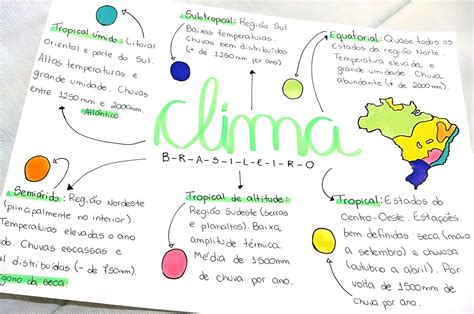 Tropical úmido: Litoral
oriental e parte do Sul.
Altas temperaturas e
grande umidade. Chuvas
entre 1250mm e 2000mm.
Atlântico
Subtropical: Região Sul
Baixas temperaturas.
Chuvas bem distribuídas
(+ de 1250mm por ano).
Equatorial: Quase todos os
Estados da região Norte.
Temperatura elevada, e
grande umidade. Chuva
abundante (+ de 2000mm).
clima
B-R-A-S-I-L-E-I-R-O
Semiárido: Região Nordeste
(principalmente no interior).
Temperaturas elevadas o ano
todo. Chuvas escassas e
mal distribuídas (- de 750mm).
da seca.
Tropical de altitude:
Região Sudeste (serras
e planaltos). Baixa
amplitude térmica.
Média de 1500mm
de chuva por ano.
Tropical: Estados do
Centro-Oeste. Estações
bem definidas: seca (maio
a setembro) e chuvosa
(outubro a abril). Por
volta de 1500mm de
chuva por ano.